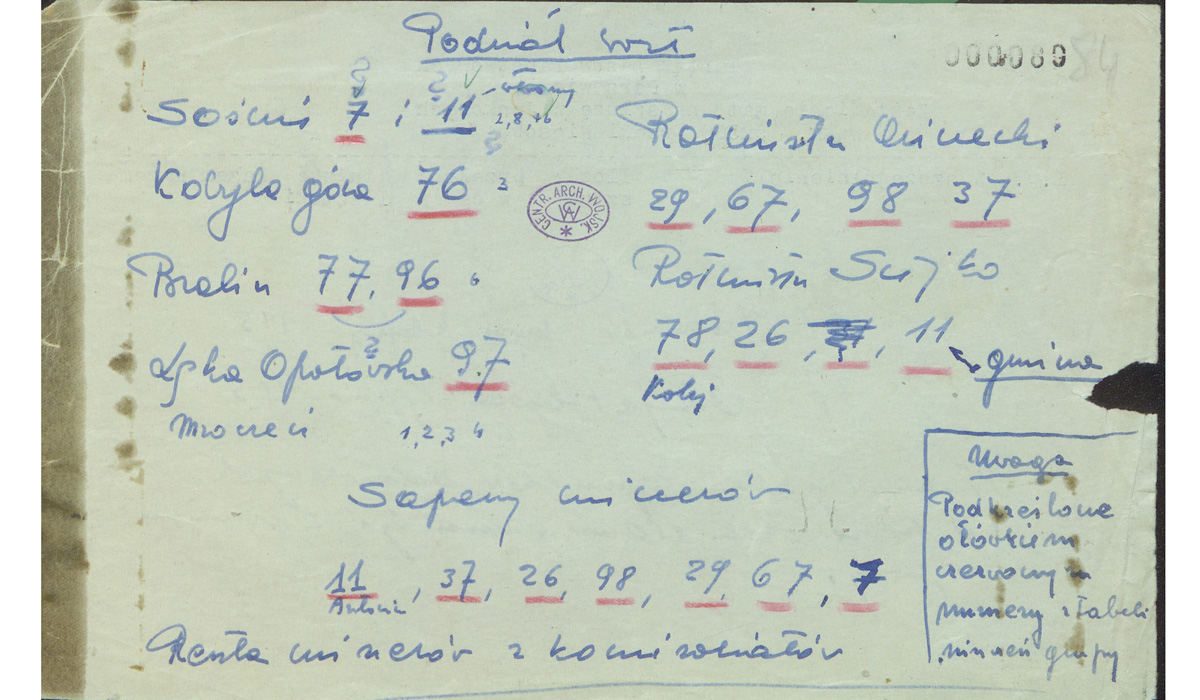 Podział
000080
84
Sośnie 7 i 11 - własny
2, 8, 16
Kobyla góra 76
Bralin 77, 96
Łęka Opatowska 97
Mroczeń 1, 2, 3 4
Rotmistrz
29, 67, 98 37
Rotmistrz
78, 26, 11 gmina
CENTR. ARCH. WOJSK.
Sapery minerów
11, 37, 26, 98, 29, 67, 7
Antonin
Reszta minerów z komisariatów
Uwaga
Podkreślone
ołówkiem
czerwonym
numery z tabeli
grupy